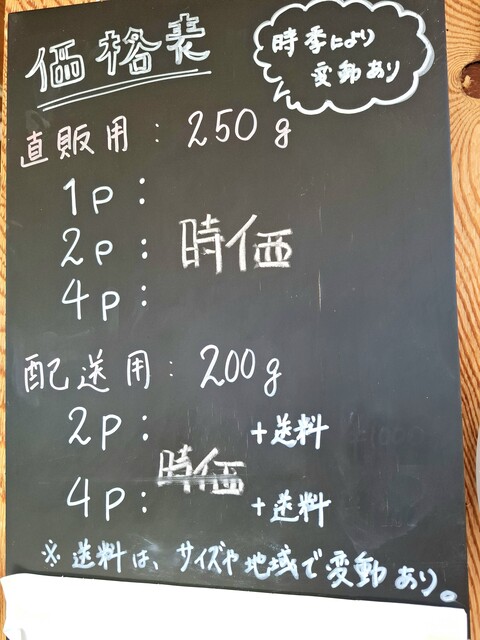 価格表
時季により
変動あり
直販用：250g
1P：
2P：
時価
4P：
配送用：200g
2P： +送料
時価
4P： +送料
※送料は、サイズや地域で変動あり。